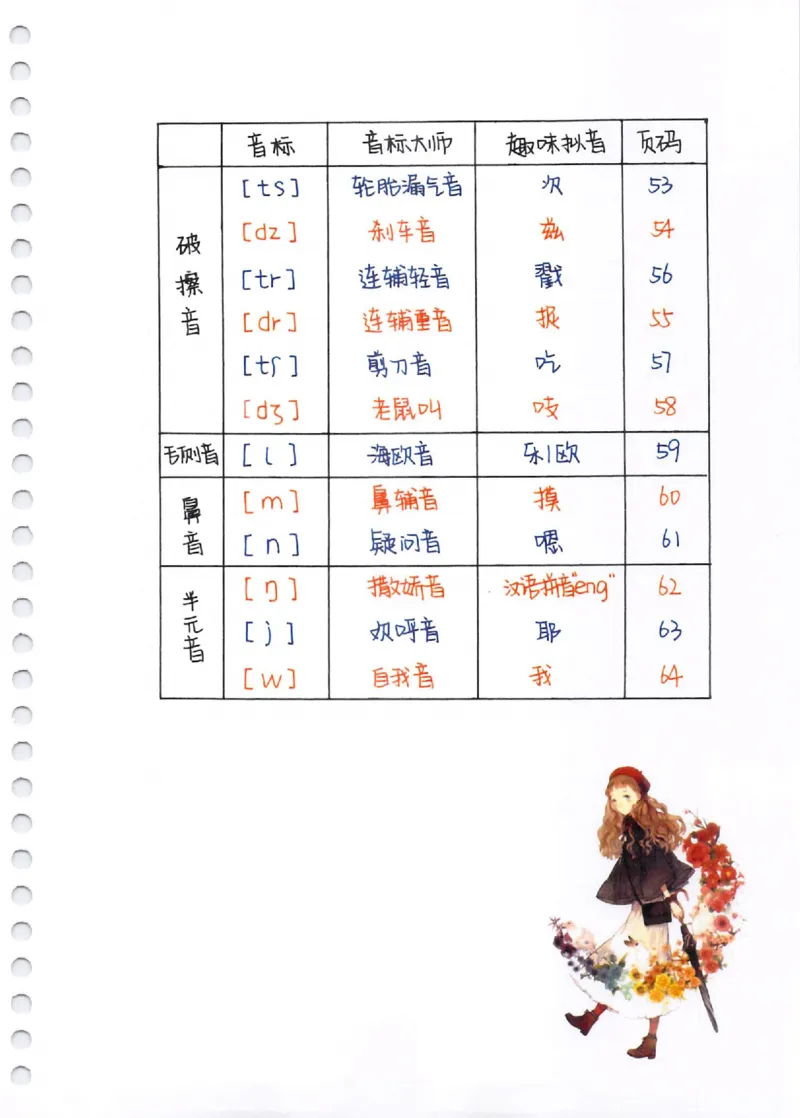 音标 音标大师 趣味拟音 页码
破擦音
[ts] 轮胎漏气音 次 53
[dz] 刹车音 兹 54
[tr] 连辅轻音 戳 56
[dr] 连辅重音 捉 55
[tʃ] 剪刀音 吃 57
[dʒ] 老鼠叫 吱 58
舌侧音 [l] 海欧音 乐欧 59
鼻音
[m] 鼻辅音 摸 60
[n] 疑问音 嗯 61
半元音
[ŋ] 撒娇音 汉语拼音"eng" 62
[j] 欢呼音 耶 63
[w] 自我音 我 64